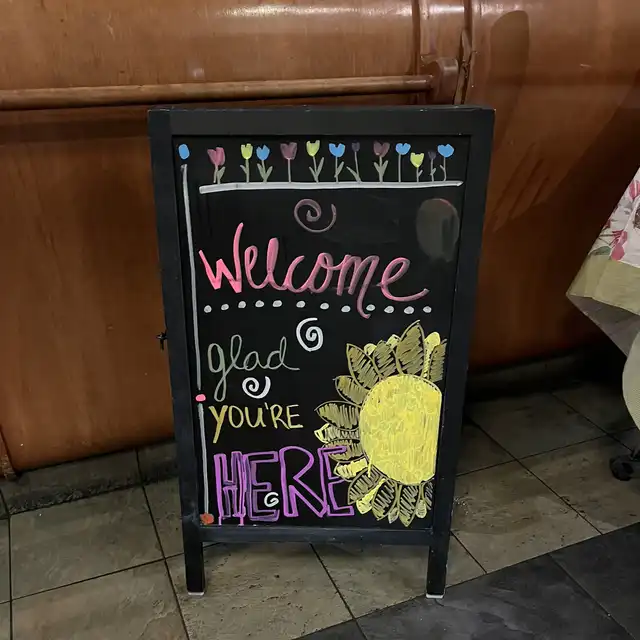 Welcome
glad
YOU'RE
HERE